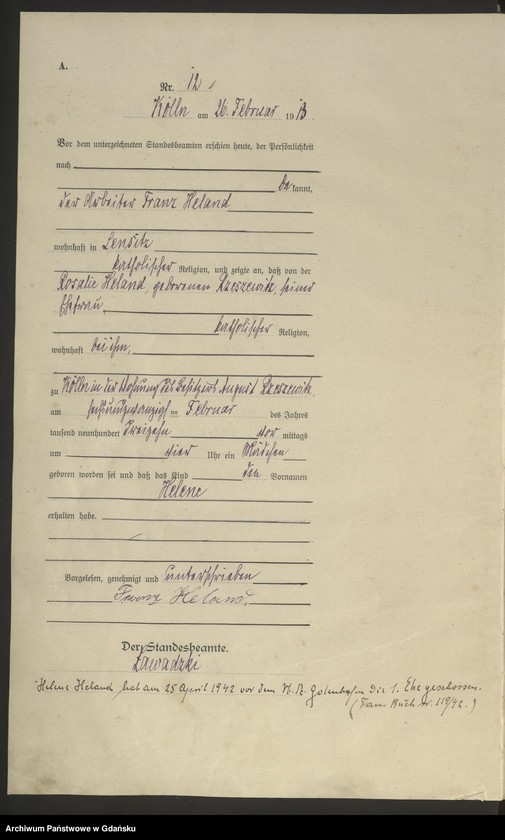 A.
Nr. 12
Kölln am 26. Februar 1913.
Vor dem unterzeichneten Standesbeamten erschien heute, der Persönlichkeit
nach
be kannt,
der Arbeiter Franz Heland
wohnhaft in Lensitz
katholischer Religion, und zeigte an, daß von der
Rosalie Heland, geborenen Rzeszewitz, seiner
Ehefrau,
katholischer Religion,
wohnhaft bei ihm,
zu Kölln in der Wohnung des Besitzers August Rzeszewitz,
am sechsundzwanzigsten Februar des Jahres
tausend neunhundert dreizehn vor mittags
um vier Uhr ein Mädchen
geboren worden sei und daß das Kind den Vornamen
Helene
erhalten habe.
Vorgelesen, genehmigt und unterschrieben
Franz Heland.
Der Standesbeamte.
Zawadzki
Helene Heland hat am 25 April 1942 vor dem St. A. Gotenhafen die 1. Ehe geschlossen.
(Fam Buch Nr. 119/42.)
Archiwum Państwowe w Gdańsku